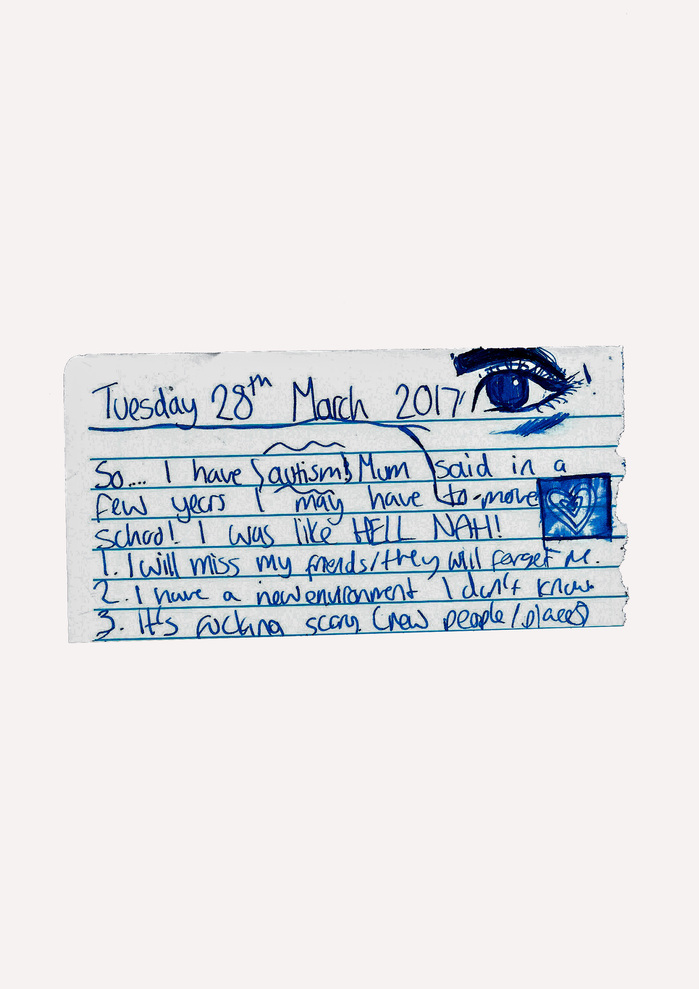 Tuesday 28th March 2017
So.... I have autism! Mum said in a
few years I may have to move
school! I was like HELL NAH!
1. I will miss my friends/they will forget me.
2. I have a new environment I don't know.
3. It's fucking scary. (new people/places)